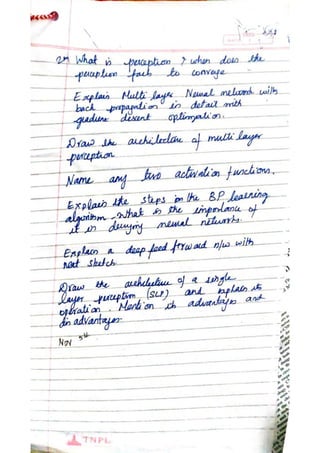 What is perception ? when does the
perception fails to converge
Explain Multi layer Neural network with
back propagation in detail with
gradient descent optimization.
Draw the architecture of multi layer
perception
Name any two activation functions.
Explain the steps in the B.P learning
algorithm. What is the importance of
it in designing neural networks.
Explain a deep feed forward n/w with
neat sketch.
Draw the architecture of a single
layer perceptron (SLP) and explain its
operation. Mention its advantages and
disadvantages.
Nov 5th
TNPL